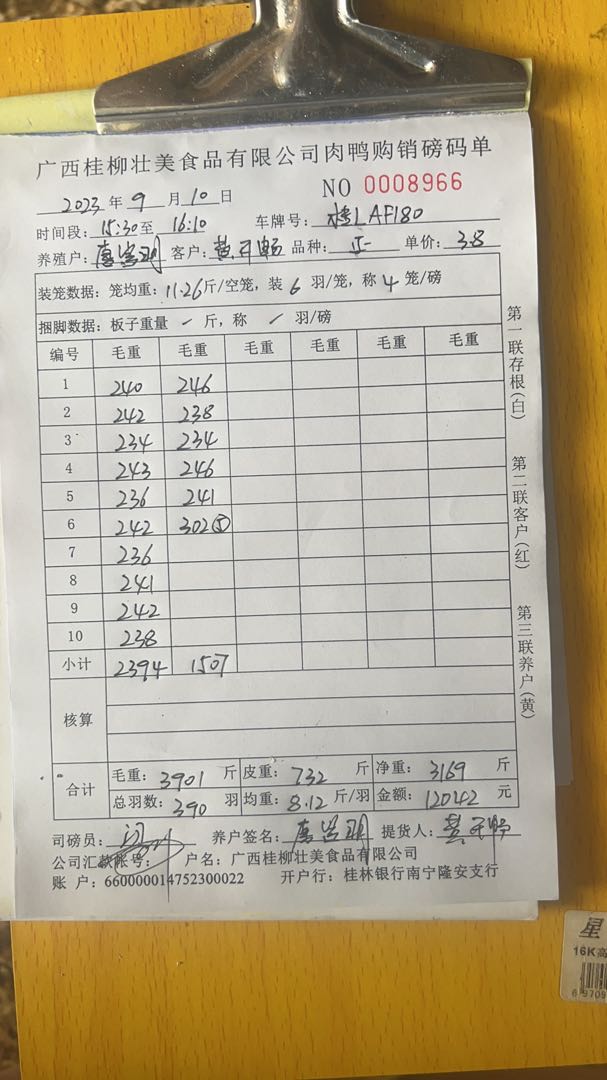 广西桂柳壮美食品有限公司肉鸭购销磅码单
2023年9月10日 NO 0008966
时间段：15:30至16:10 车牌号：桂LAF180
养殖户： 客户：黄 畅 品种： 单价：3.8
装笼数据：笼均重：11.26斤/空笼，装6羽/笼，称4笼/磅
捆脚数据：板子重量 / 斤，称 / 羽/磅
编号 毛重 毛重 毛重 毛重 毛重 毛重
1 240 246
2 242 238
3 234 234
4 243 246
5 236 241
6 242 302⑤
7 236
8 241
9 242
10 238
小计 2394 1507
核算
合计 毛重：3901斤 皮重：732斤 净重：3169斤
总羽数：390羽 均重：8.12斤/羽 金额：12042元
司磅员： 养户签名： 提货人：黄
公司汇款帐号： 户名：广西桂柳壮美食品有限公司
账户：660000014752300022 开户行：桂林银行南宁隆安支行
第一联存根（白）
第二联客户（红）
第三联养户（黄）
星
16K高
6 9709